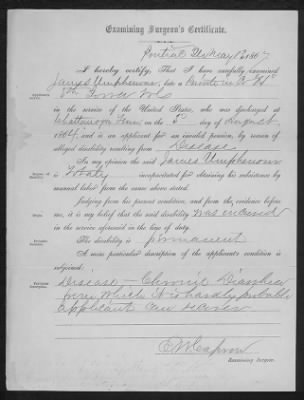 Examining Surgeon's Certificate.
Pontiac Ills May 1867
I hereby certify, That I have carefully examined
James Umphenour, late a Private in Co
in the service of the United States, who was discharged at
Chattanooga Tenn, on the day of August
1864, and is an applicant for an invalid pension, by reason of
alleged disability resulting from Disease
In my opinion the said James Umphenour
is Totally incapacitated for obtaining his subsistence by
manual labor from the cause above stated.
Judging from his present condition, and from the evidence before
me, it is my belief that the said disability was incurred
in the service aforesaid in the line of duty.
The disability is permanent
A more particular description of the applicant's condition is
subjoined:
Disease – Chronic Diarrhea
from which it is hardly probable
applicant can
Examining Surgeon.